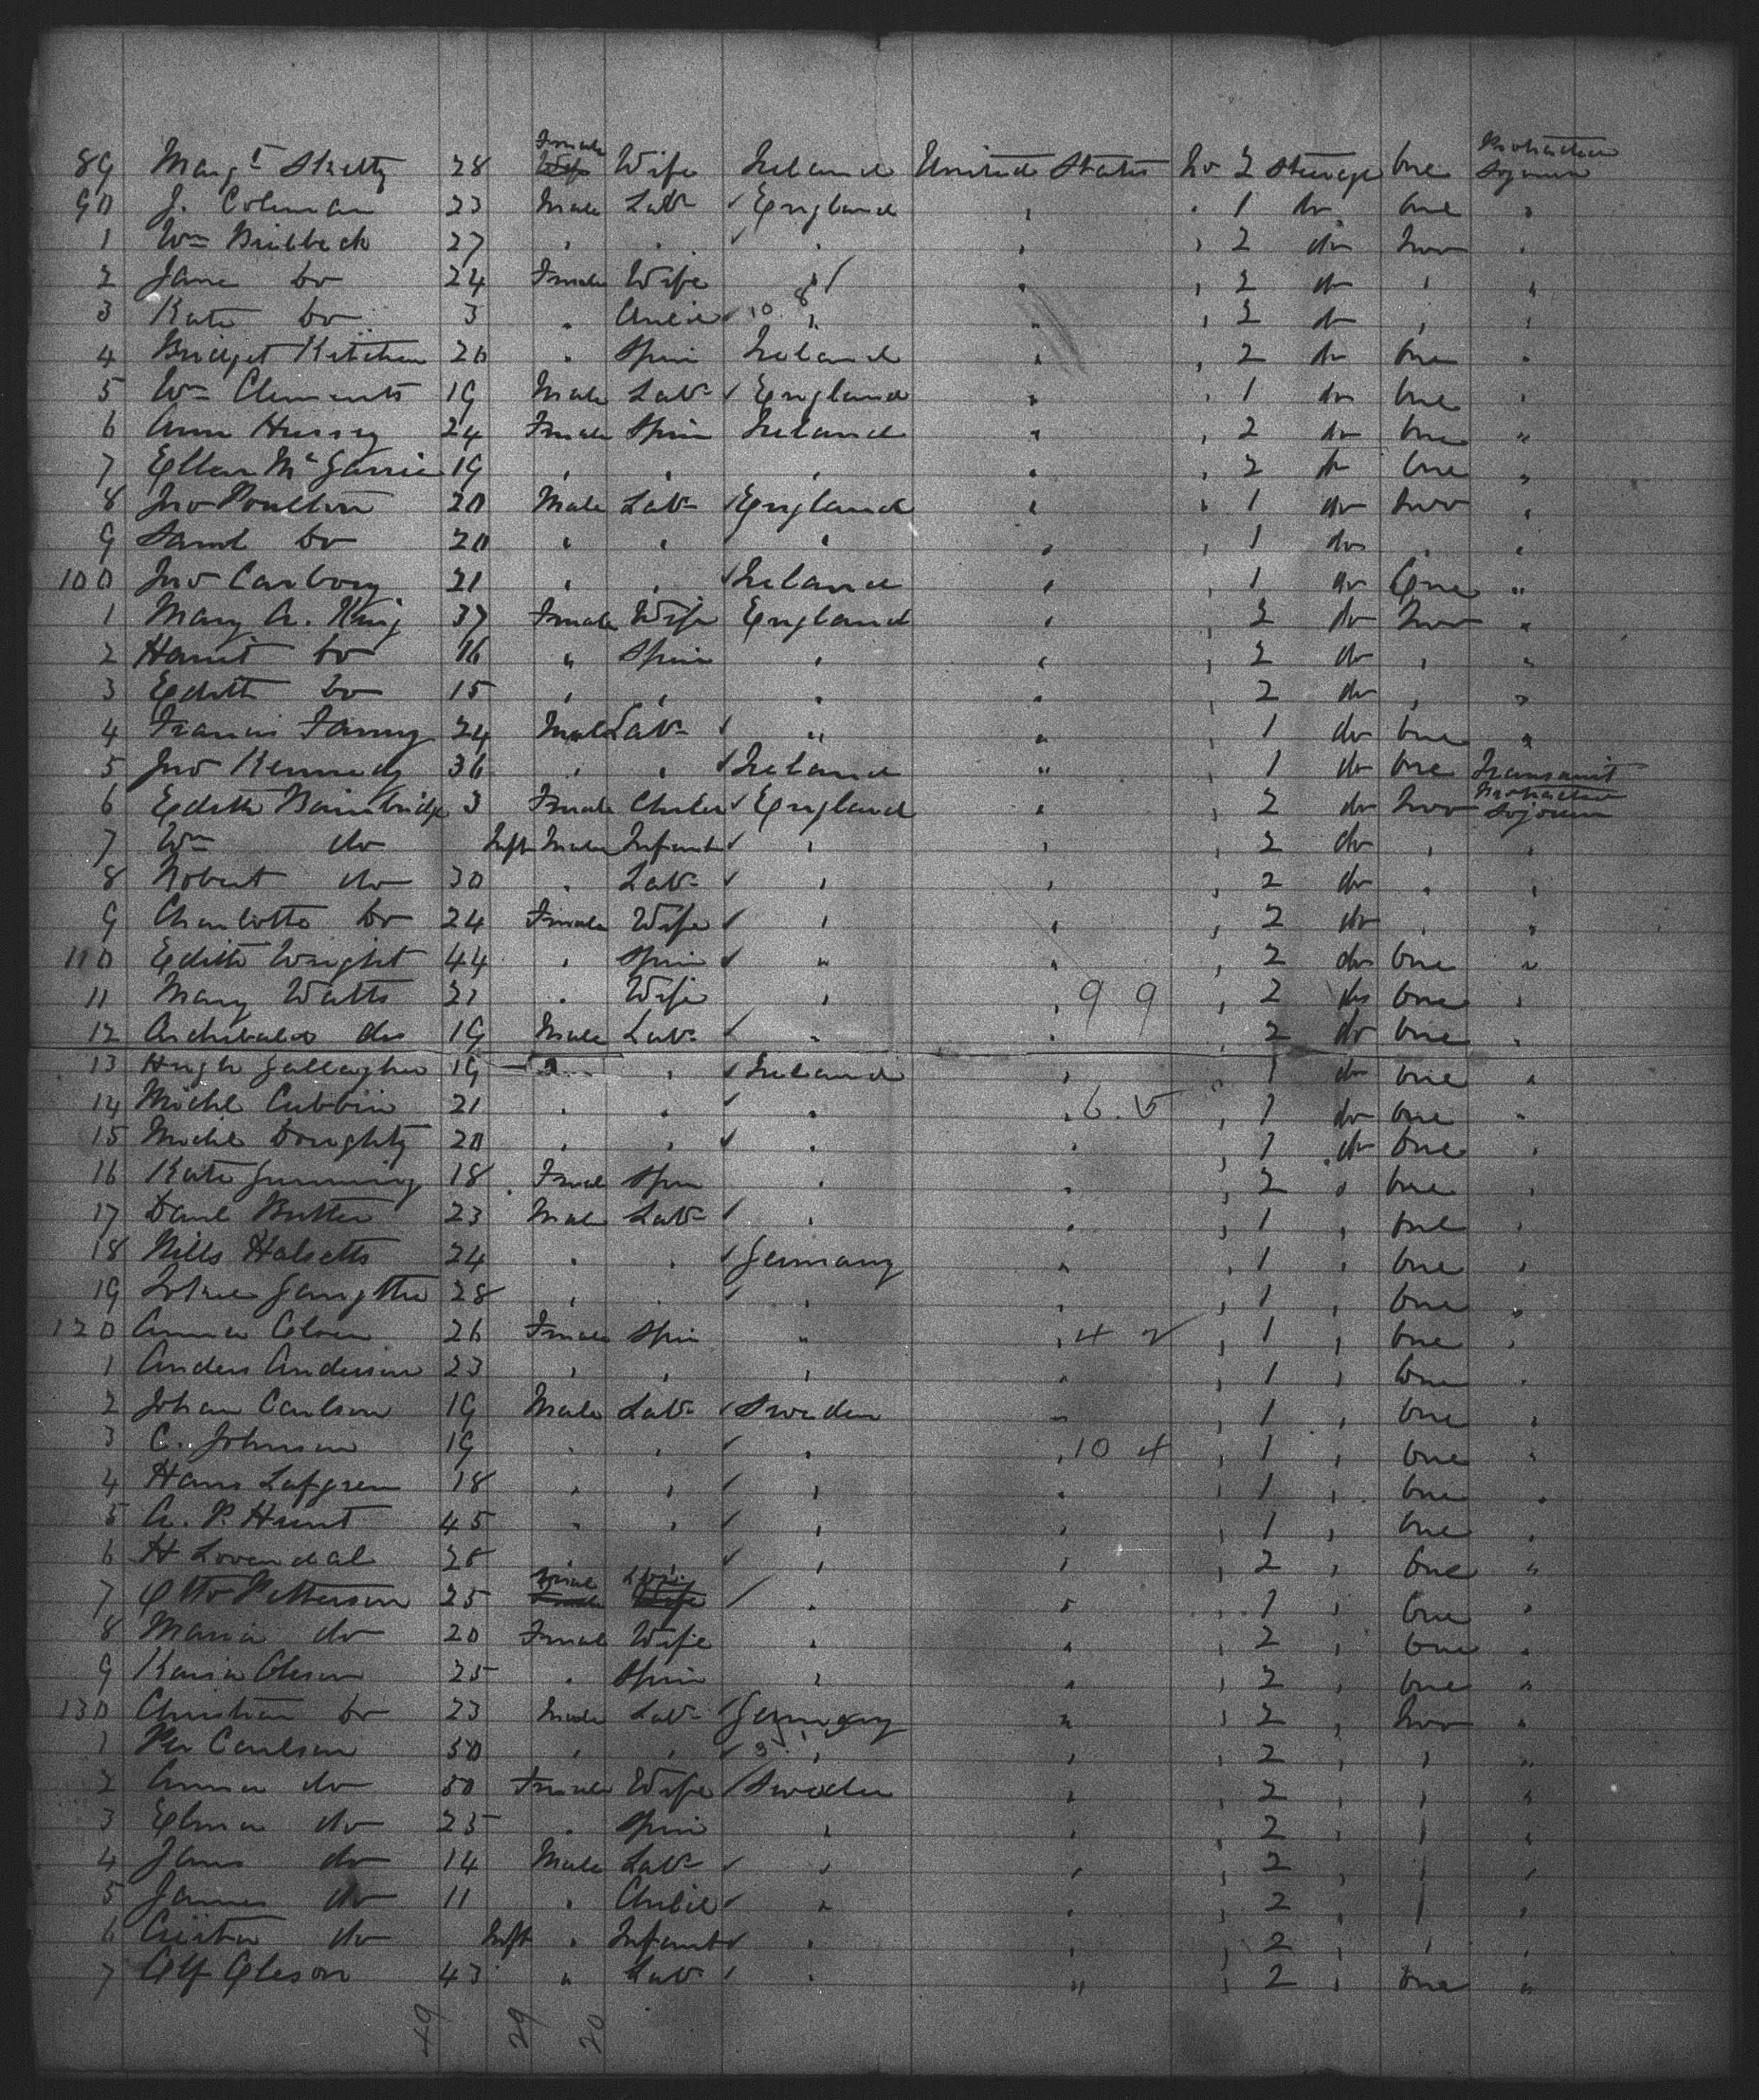 89 Margt Skelly 28 Female Wife Wife Ireland United States No 2 Steerage One Protracted Sojourn
90 J. Coleman 23 Male Labr ✓ England " " 1 do One "
1 Wm 27 " " ✓ " " " 2 do Two "
2 Jane Do 24 Female Wife " ✓ " " 2 do " "
3 Kate Do 3 " Child ✓ 10 8 " " " 2 do " "
4 Bridget Kitchen 20 " Spin Ireland " " 2 do One "
5 Wm Clements 19 Male Labr ✓ England " " 1 do One "
6 Ann Hussey 24 Female Spin Ireland " " 2 do One "
7 Ellen 19 " " " " " 2 do One "
8 Jno Poulton 20 Male Labr ✓ England " " 1 do Two "
9 Saml Do 20 " " " " " 1 do " "
100 Jno 21 " " ✓ Ireland " " 1 do One "
1 Mary A. King 37 Female Wife England " " 2 do Two "
2 Harriet Do 16 " Spin " " " 2 do " "
3 Edith Do 15 " " " " " 2 do " "
4 Francis 24 Male Labr ✓ " " " 1 do One "
5 Jno Kennedy 36 " " ✓ Ireland " " 1 do One Transit
6 Edith Bainbridge 3 Female Child ✓ England " " 2 do Two Protracted Sojourn
7 Wm do Inft Male Infant ✓ " " " 2 do " "
8 Robert do 30 " Labr ✓ " " " 2 do " "
9 Charlotte Do 24 Female Wife ✓ " " " 2 do " "
110 Edith Wright 44 " Spin ✓ " " " 2 do One "
11 Mary Watts 21 " Wife " " 9 9 " 2 do One "
12 Archibald do 19 Male Labr ✓ " " " 2 do One "
13 Hugh Gallagher 19 " " ✓ Ireland " " 1 do One "
14 Michl Cubbin 21 " " ✓ " " 6 5 " 1 do One "
15 Michl Doughty 20 " " ✓ " " " 1 do One "
16 Kate 18 Female Spin " " " 2 " One "
17 Danl Butler 23 Male Labr ✓ " " " 1 " One "
18 Nills 24 " " ✓ Germany " " 1 " One "
19 28 " " ✓ " " " 1 " One "
120 Anna Olsen 26 Female Spin " " 4 2 " 1 " One "
1 Anders Anderson 23 " " " " " 1 " One "
2 Johan Carlson 19 Male Labr ✓ Sweden " " 1 " One "
3 C. Johnson 19 " " ✓ " " 10 4 " 1 " One "
4 Hans Lofgren 18 " " ✓ " " " 1 " One "
5 A. P. Hunt 45 " " ✓ " " " 1 " One "
6 H Lovendal 28 ✓ " " " 2 " One "
7 Otto Petterson 25 Male Female Labr Wife ✓ " " " 1 " One "
8 Maria do 20 Female Wife " " " 2 " One "
9 Karin Oleson 25 " Spin " " " 2 " One "
130 Christian Do 23 Male Labr ✓ Germany " " 2 " Two "
1 Per Carlson 50 " " ✓ " " " 2 " " "
2 Anna do 50 Female Wife ✓ Sweden " " 2 " " "
3 do 25 " Spin " " " 2 " " "
4 Jans do 14 Male Labr ✓ " " " 2 " " "
5 James do 11 " Child ✓ " " " 2 " " "
6 do Inft " Infant ✓ " " " 2 " " "
7 Alf Oleson 43 " Labr ✓ " " " 2 " One "
49 29 20